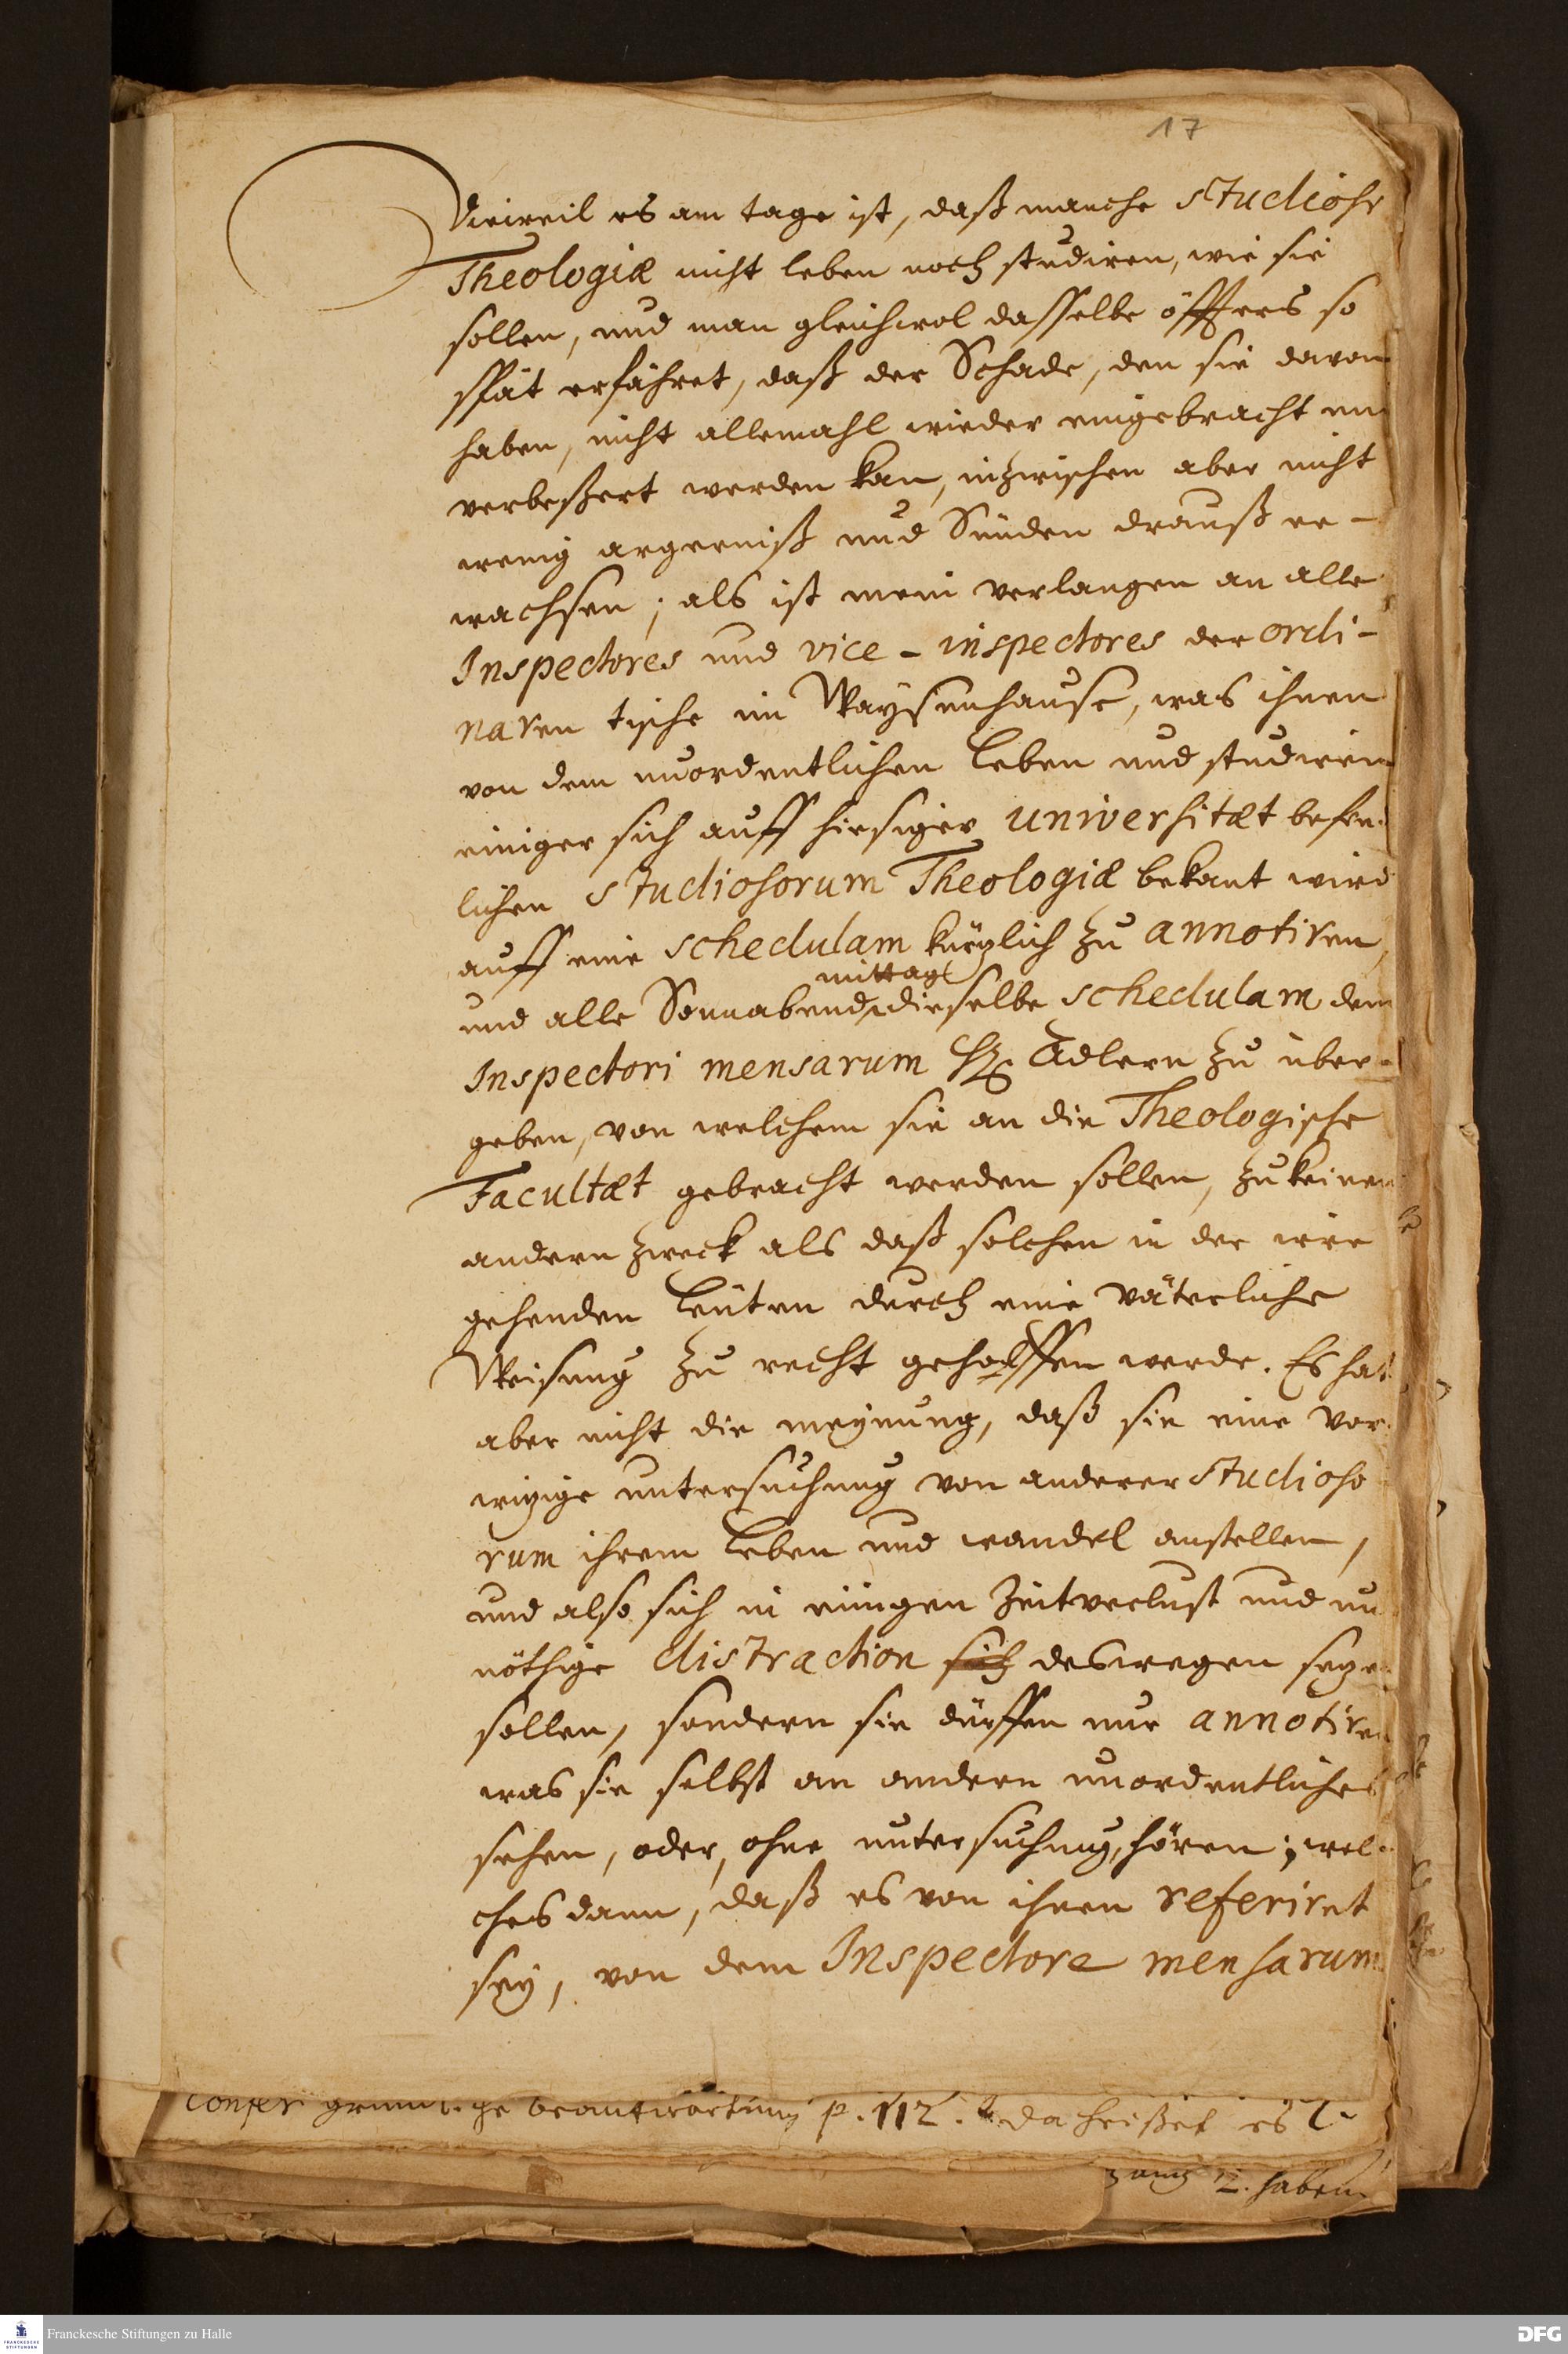 17
Dieweil es am tage ist, daß manche Studiosi
Theologiæ nicht leben noch studiren, wie sie
sollen, und man gleichwol dasselbe öffters so
spät erfähret, daß der Schade, den sie davon
haben, nicht allemahl wieder eingebracht un
verbeßert werden kan, inzwischen aber nicht
wenig argerniß und Sünden drauß er-
wachsen; als ist mein verlangen an alle
Inspectores und vice-inspectores der ordi-
naren tische im Waysenhause, was ihnen
von dem unordentlichen Leben und studiren
einiger sich auff hiesiger universitæt befin-
lichen Studiosorum Theologiæ bekant wird
auff eine schedulam kürtzlich zu annotiren,
mittags
und alle Sonnabend dieselbe schedulam dem
Inspectori mensarum H. Adlern zu über-
geben, von welchem sie an die Theologische
Facultæt gebracht werden sollen, zu keinen
andern zweck als daß solchen in der irre
gehenden Leuten durch eine väterliche
Weisung zu recht geholffen werde. Es hat
aber nicht die meynung, daß sie eine vor-
witzige untersuchung von anderer Studioso
rum ihrem Leben und wandel anstellen,
und also sich in einigen Zeitverlust und un
nöthige distraction sich deswegen setzen
sollen, sondern sie dürffen nur annotiren
was sie selbst an andern unordentliches
sehen, oder, ohne untersuchung, hören; wel-
ches dann, daß es von ihnen referiret
sey, von dem Inspectore mensarum
Confer gründliche beantwortung p. 112. da heißet es
haben
Franckesche Stiftungen zu Halle
FRANCKESCHE STIFTUNGEN
DFG